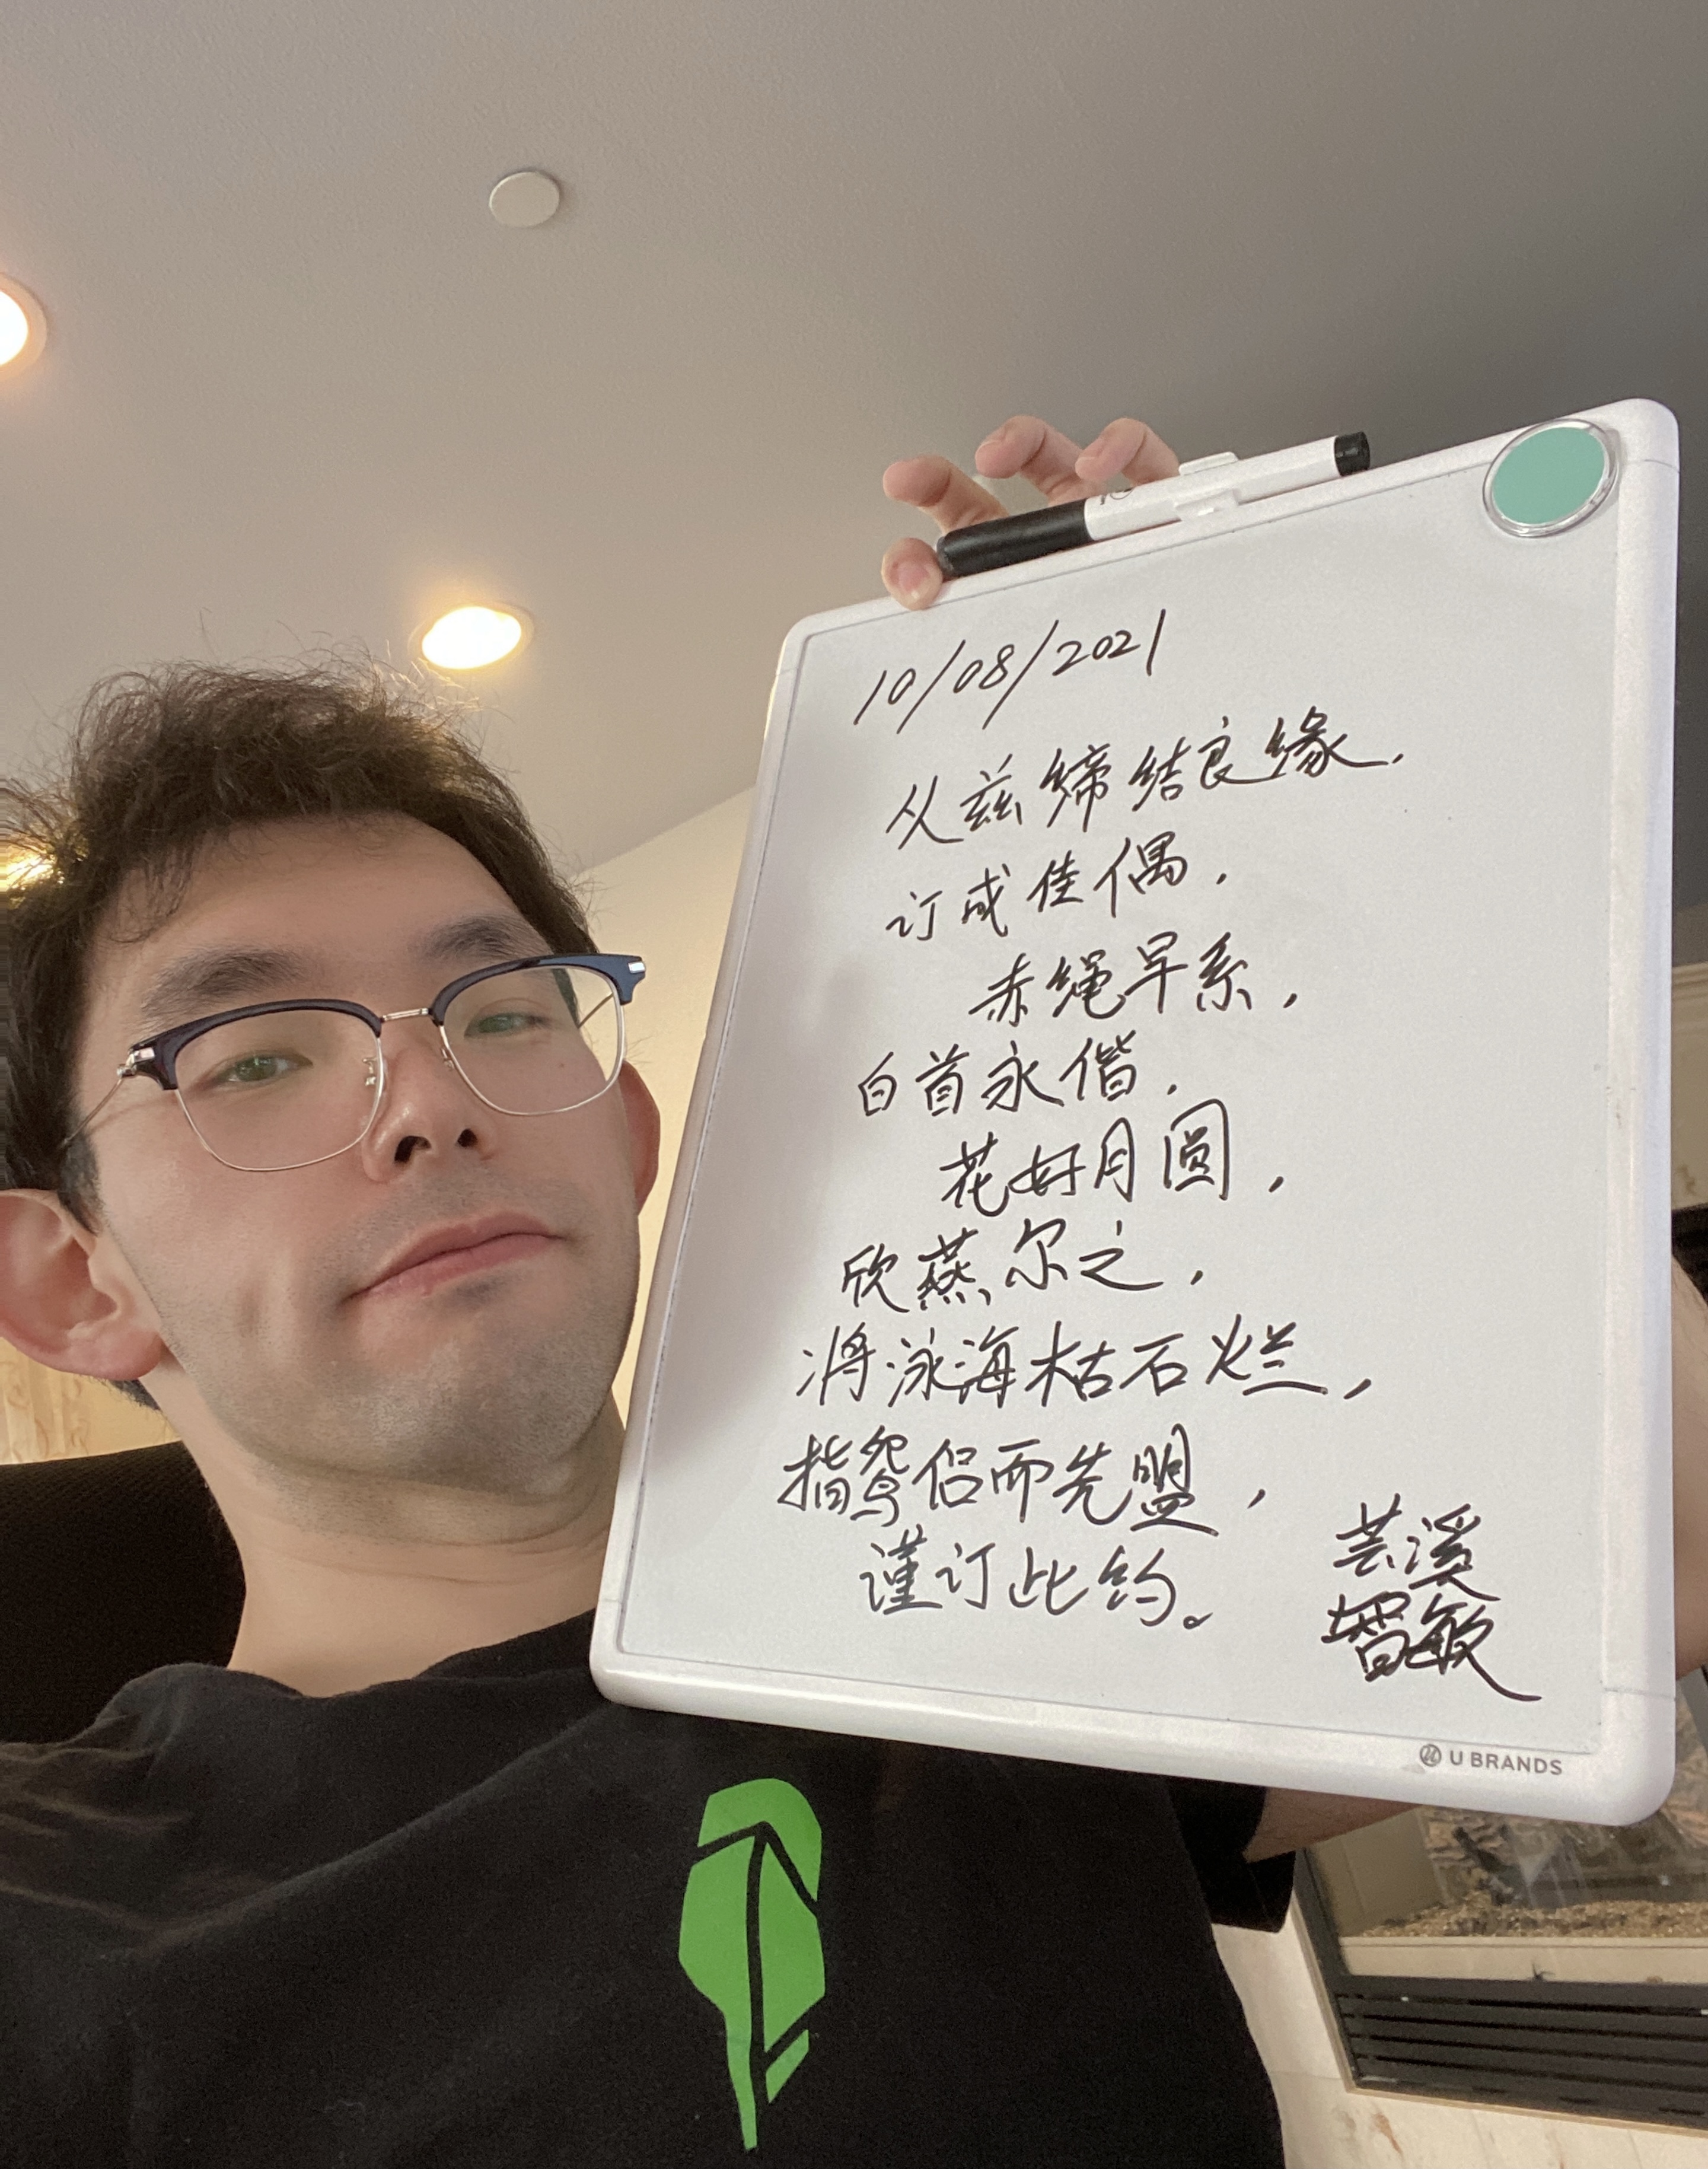 10/08/2021
从兹缔结良缘,
订成佳偶.
赤绳早系,
白首永偕.
花好月圆,
欣燕尔之,
将泳海枯石烂,
指鸳侣而先盟,
谨订此约。
芸溪
智敏
U BRANDS